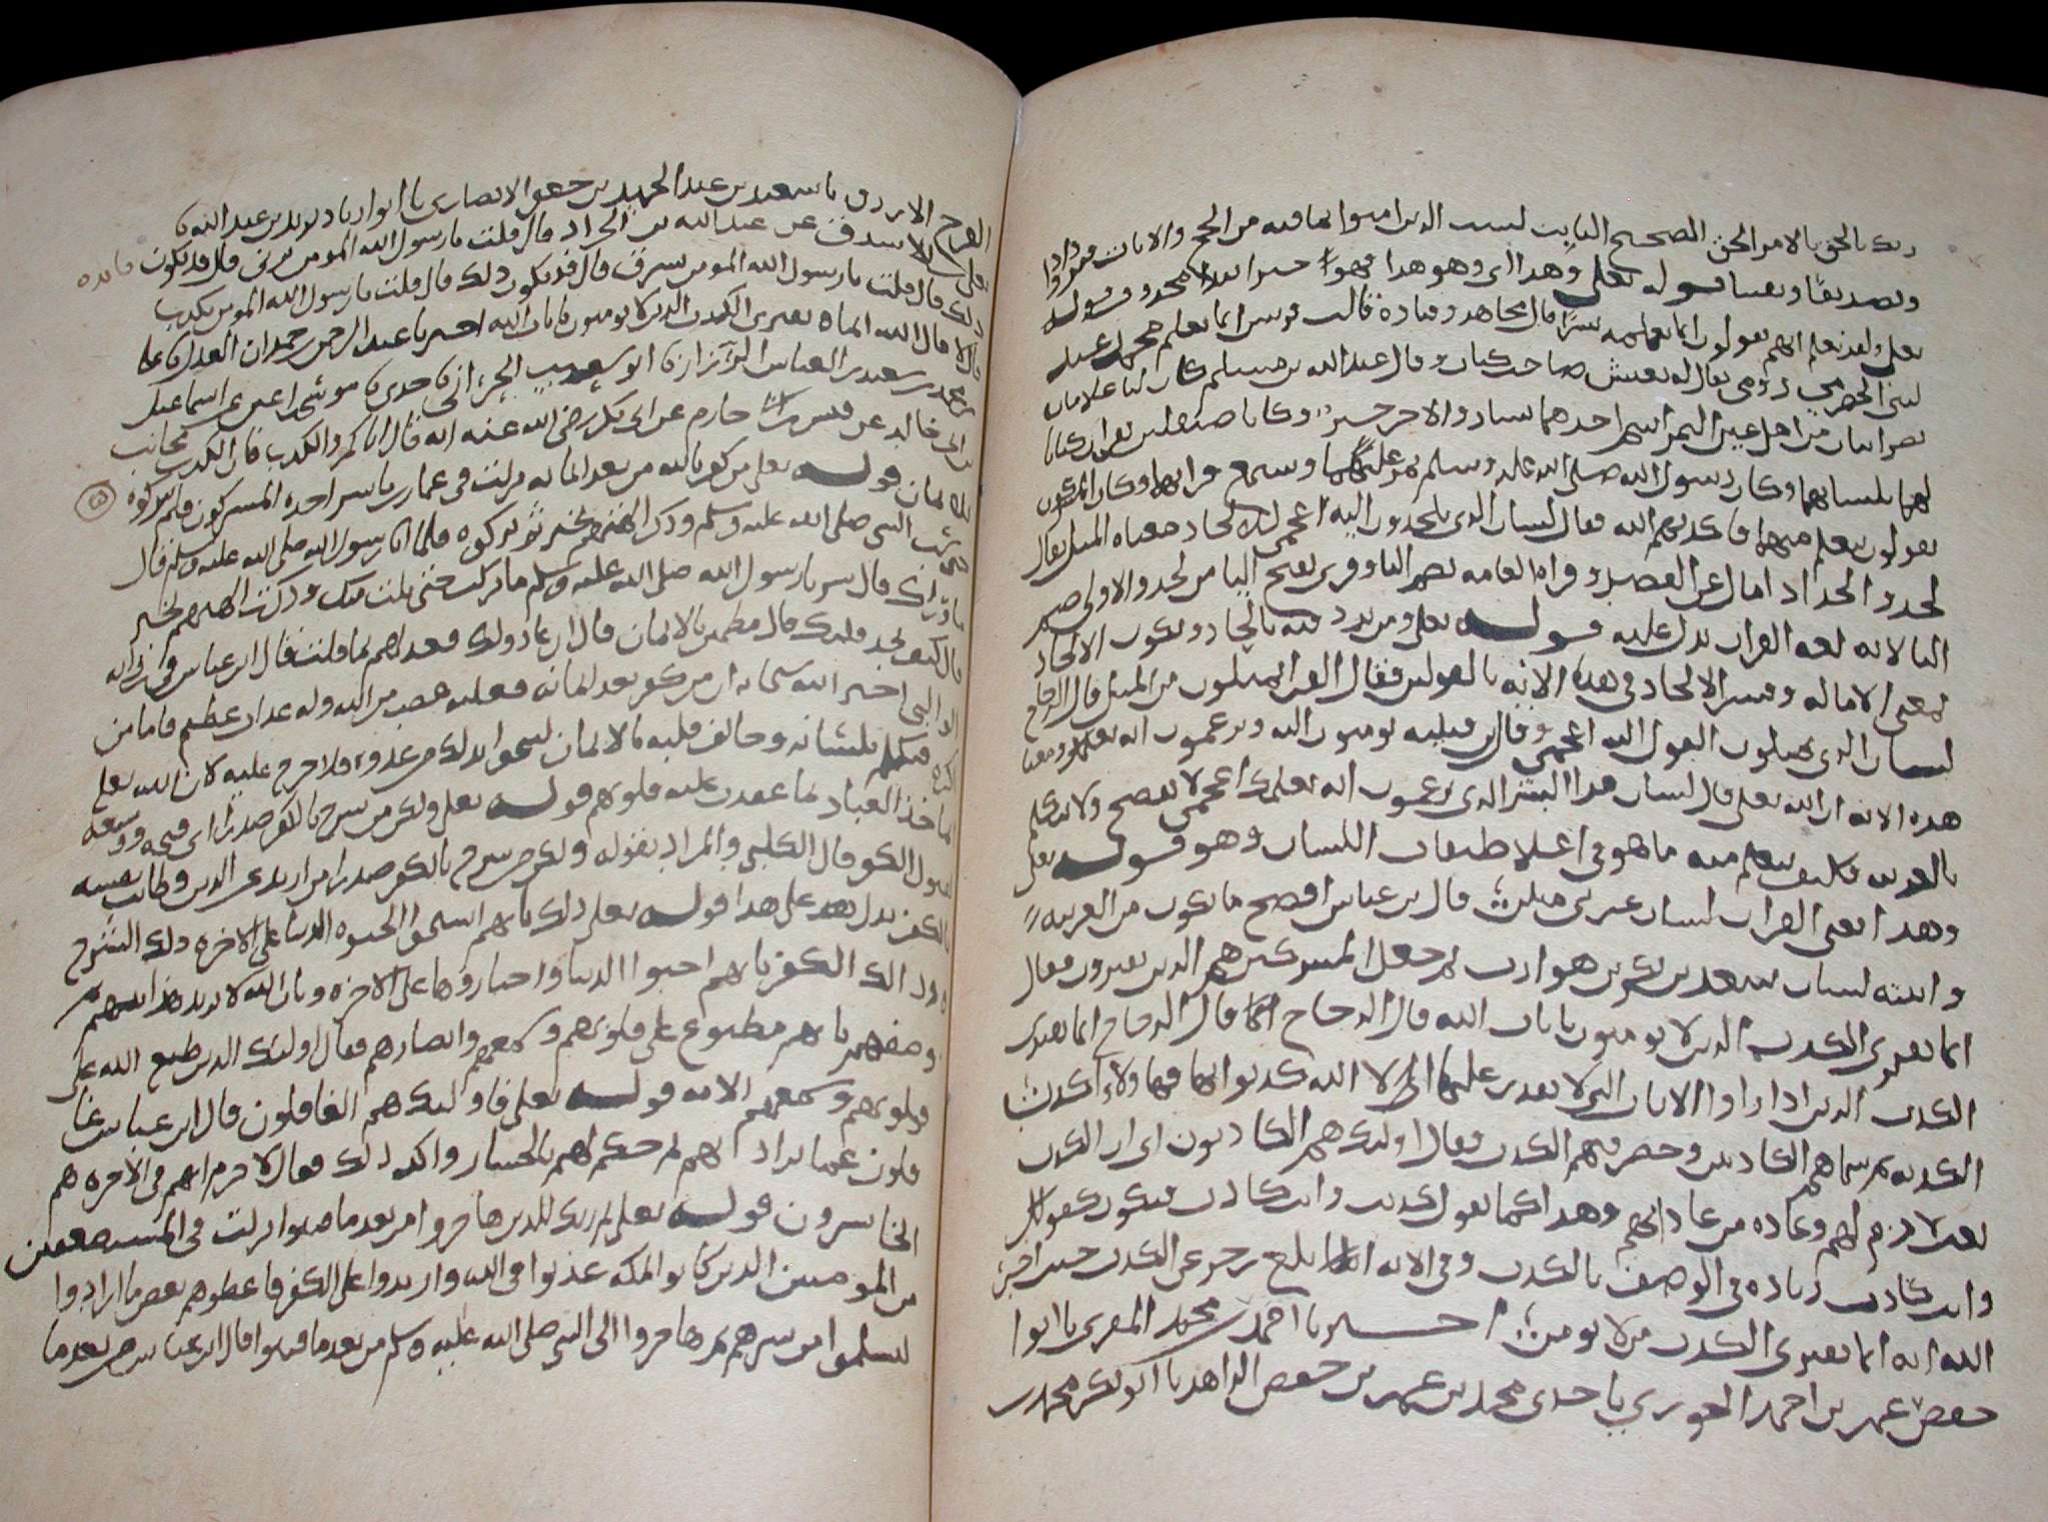 ربك بالحق بالامر الحق الصحيح الثابت ليثبت الذين امنوا بما فيه من الحجج والايات فيزدادوا
وتصديقا ويقينا قوله تعلى وهدى اي وهو هدى
تعلى ولقد نعلم انهم يقولون انما يعلمه بشر قال مجاهد وقتادة قالت قريش انما يعلم محمدا عبد
لبني الحضرمي رومي يقال له يعيش صاحب كتاب وقال عبد الله بن مسلم كان لنا غلامان
نصرانيان من اهل عين التمر اسم احدهما يسار والاخر خير وكانا صيقلين يقران كتابا
لهما بلسانهما وكان رسول الله صلى الله عليه وسلم يمر عليهما ويسمع قراتهما وكان المشركون
يقولون يتعلم منهما فاكذبهم الله فقال لسان الذي يلحدون اليه اعجمي الالحاد معناه الميل يقال
لحد والحد اذا مال عن القصد وقراه العامه بضم اليا وقرى بفتح اليا من لحد والاولى ضم
اليا لانه لغه القران يدل عليه قوله تعلى ومن يرد فيه بالحاد ويكون الالحاد
بمعنى الاماله وفسر الالحاد في هذه الايه بالقولين فقال الفرا يميلون من الميل قال الزجاج
لسان الذي يميلون القول اليه اعجمي وقال ابن قتيبه يومون اليه ويزعمون انه يعلمك ومعنى
هذه الايه ان الله تعلى قال لسان هذا البشر الذي يزعمون انه يعلمك اعجمي لا يفصح ولا يتكلم
بالعربيه فكيف يتعلم منه ما هو في اعلا طبقات اللسان وهو قوله تعلى
وهذا يعني القران لسان عربي مبين قال ابن عباس افصح ما يكون من العربيه
وابينه لسان سعد بن بكر بن هوازن ثم جعل المشركين هم الذين يفترون فقال
انما يفتري الكذب الذين لا يومنون بايات الله قال الزجاج اي انما يفتري
الكذب الذين اذا راوا الايات التي لا يقدر عليها الا الله كذبوا بها فهاولاء اكذب
الكذبه ثم سماهم الكاذبين وحصر فيهم الكذب فقال اولئك هم الكاذبون اي ان الكذب
نعت لازم لهم وعاده من عاداتهم وهذا كما يقول كذبت وانت كاذب فيكون كقولك
وانت كاذب زياده في الوصف بالكذب وفي الايه ابلغ زجر عن الكذب حيث اخبر
الله انه انما يفتري الكذب من لا يومن اخبرنا احمد بن محمد المقري نا ابو
حفص عمر بن احمد الجوري نا جدي محمد بن عمر بن حفص الزاهد نا ابو بكر محمد بن
الفرج الازرق نا سعيد بن عبد الحميد بن جعفر الانصاري نا ابو زياد يزيد بن عبد الله
عن عبد الله بن الجراد قال قلت يا رسول الله المومن يزني قال قد يكون
ذلك قال قلت يا رسول الله المومن يسرق قال قد يكون ذلك قال قلت يا رسول الله المومن يكذب
قال لا قال الله انما يفتري الكذب الذين لا يومنون بايات الله اخبرنا عبد الرحمن بن حمدان العدل
بن ابي خالد عن قيس بن ابي حازم عن ابي بكر رضي الله عنه انه قال اياكم والكذب فان الكذب مجانب
للايمان قوله تعلى من كفر بالله من بعد ايمانه نزلت في عمار بن ياسر اخذه المشركون فلم يتركوه
حتى سب النبي صلى الله عليه وسلم وذكر الهتهم بخير ثم تركوه فلما اتى رسول الله صلى الله عليه وسلم قال
ما وراك قال شر يا رسول الله صلى الله عليه وسلم ما تركت حتى نلت منك وذكرت الهتهم بخير
قال كيف تجد قلبك قال مطمئن بالايمان قال ان عادوا لك فعد لهم بما قلت قال ابن عباس
اخبر الله سبحانه ان من كفر بعد ايمانه فعليه غضب من الله وله عذاب عظيم فاما من
اكره فتكلم بلسانه وخالف قلبه بالايمان لينجوا بذلك من عدوه فلا حرج عليه لان الله تعلى
ياخذ العباد بما عقدت عليه قلوبهم قوله تعلى ولكن من شرح بالكفر صدرا اي فتحه ووسعه
لقبول الكفر قال الكلبي والمراد بقوله ولكن من شرح بالكفر صدرا من ارتد عن الدين وطابت نفسه
بالكفر يدل على هذا قوله تعلى ذلك بانهم استحبوا الحيوه الدنيا على الاخره ذلك الشرح
وذلك الكفر بانهم احبوا الدنيا واختاروها على الاخره وبان الله لا يريد هدايتهم
وصفهم بانهم مطبوع على قلوبهم وسمعهم وابصارهم فقال اولئك الذين طبع الله على
قلوبهم وسمعهم الايه قوله تعلى واوليك هم الغافلون قال ابن عباس غا
فلون عما يراد بهم ثم حكم لهم بالخسار واكد ذلك فقال لا جرم انهم في الاخره هم
الخاسرون قوله تعلى ثم ان ربك للذين هاجروا من بعد ما فتنوا نزلت في المستضعفين
من المومنين الذين كانوا بمكه عذبوا في الله واريدوا على الكفر فاعطوهم بعض ما ارادوا
ليسلموا من شرهم ثم هاجروا الى النبي صلى الله عليه وسلم من بعد ما فتنوا قال ابن عباس من بعد ما